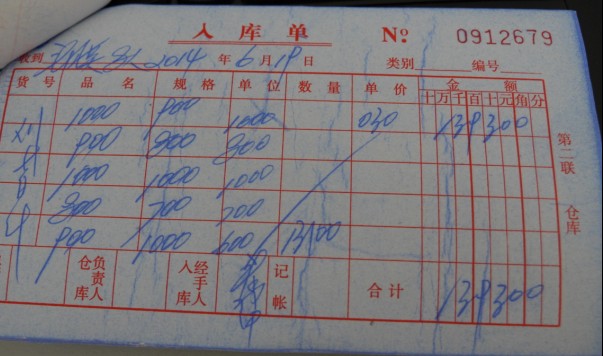 入库单 № 0912679
收到 2014年6月19日 类别 编号
货号 品名 规格 单位 数量 单价 金额
十万千百十元角分
1000 900 1000 030 139300
900 800 800
1000 1000 1000
800 700 700
900 1000 600 13100
仓库负责人 入库经手人 记帐 合计 139300
第二联 仓库